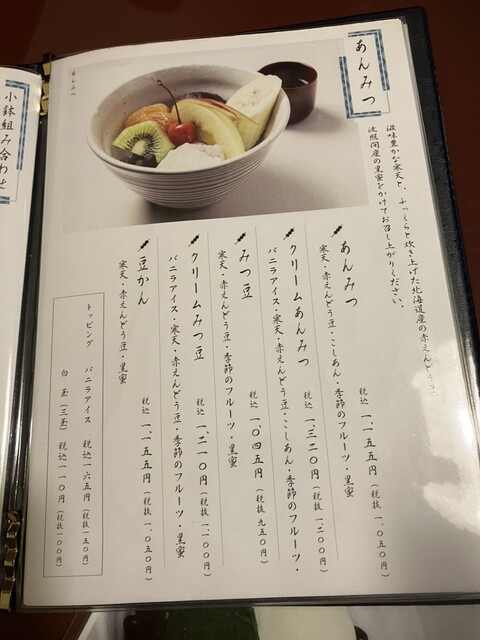 あんみつ
滋味豊かな寒天と、ふっくらと炊き上げた北海道産の赤えんどう豆
波照間産の黒蜜をかけてお召し上がりください。
あんみつ
あんみつ
寒天・赤えんどう豆・こしあん・季節のフルーツ・黒蜜
税込 一、一五五円(税抜 一、〇五〇円)
クリームあんみつ
バニラアイス・寒天・赤えんどう豆・こしあん・季節のフルーツ・
税込 一、三二〇円(税抜 一、二〇〇円)
みつ豆
寒天・赤えんどう豆・季節のフルーツ・黒蜜
税込 一、〇四五円(税抜 九五〇円)
クリームみつ豆
バニラアイス・寒天・赤えんどう豆・季節のフルーツ・黒蜜
税込 一、二一〇円(税抜 一、一〇〇円)
豆かん
寒天・赤えんどう豆・黒蜜
税込 一、一五五円(税抜 一、〇五〇円)
トッピング
バニラアイス 税込 一六五円(税抜 一五〇円)
白玉(三玉) 税込 一一〇円(税抜 一〇〇円)
小鉢組み合わせ